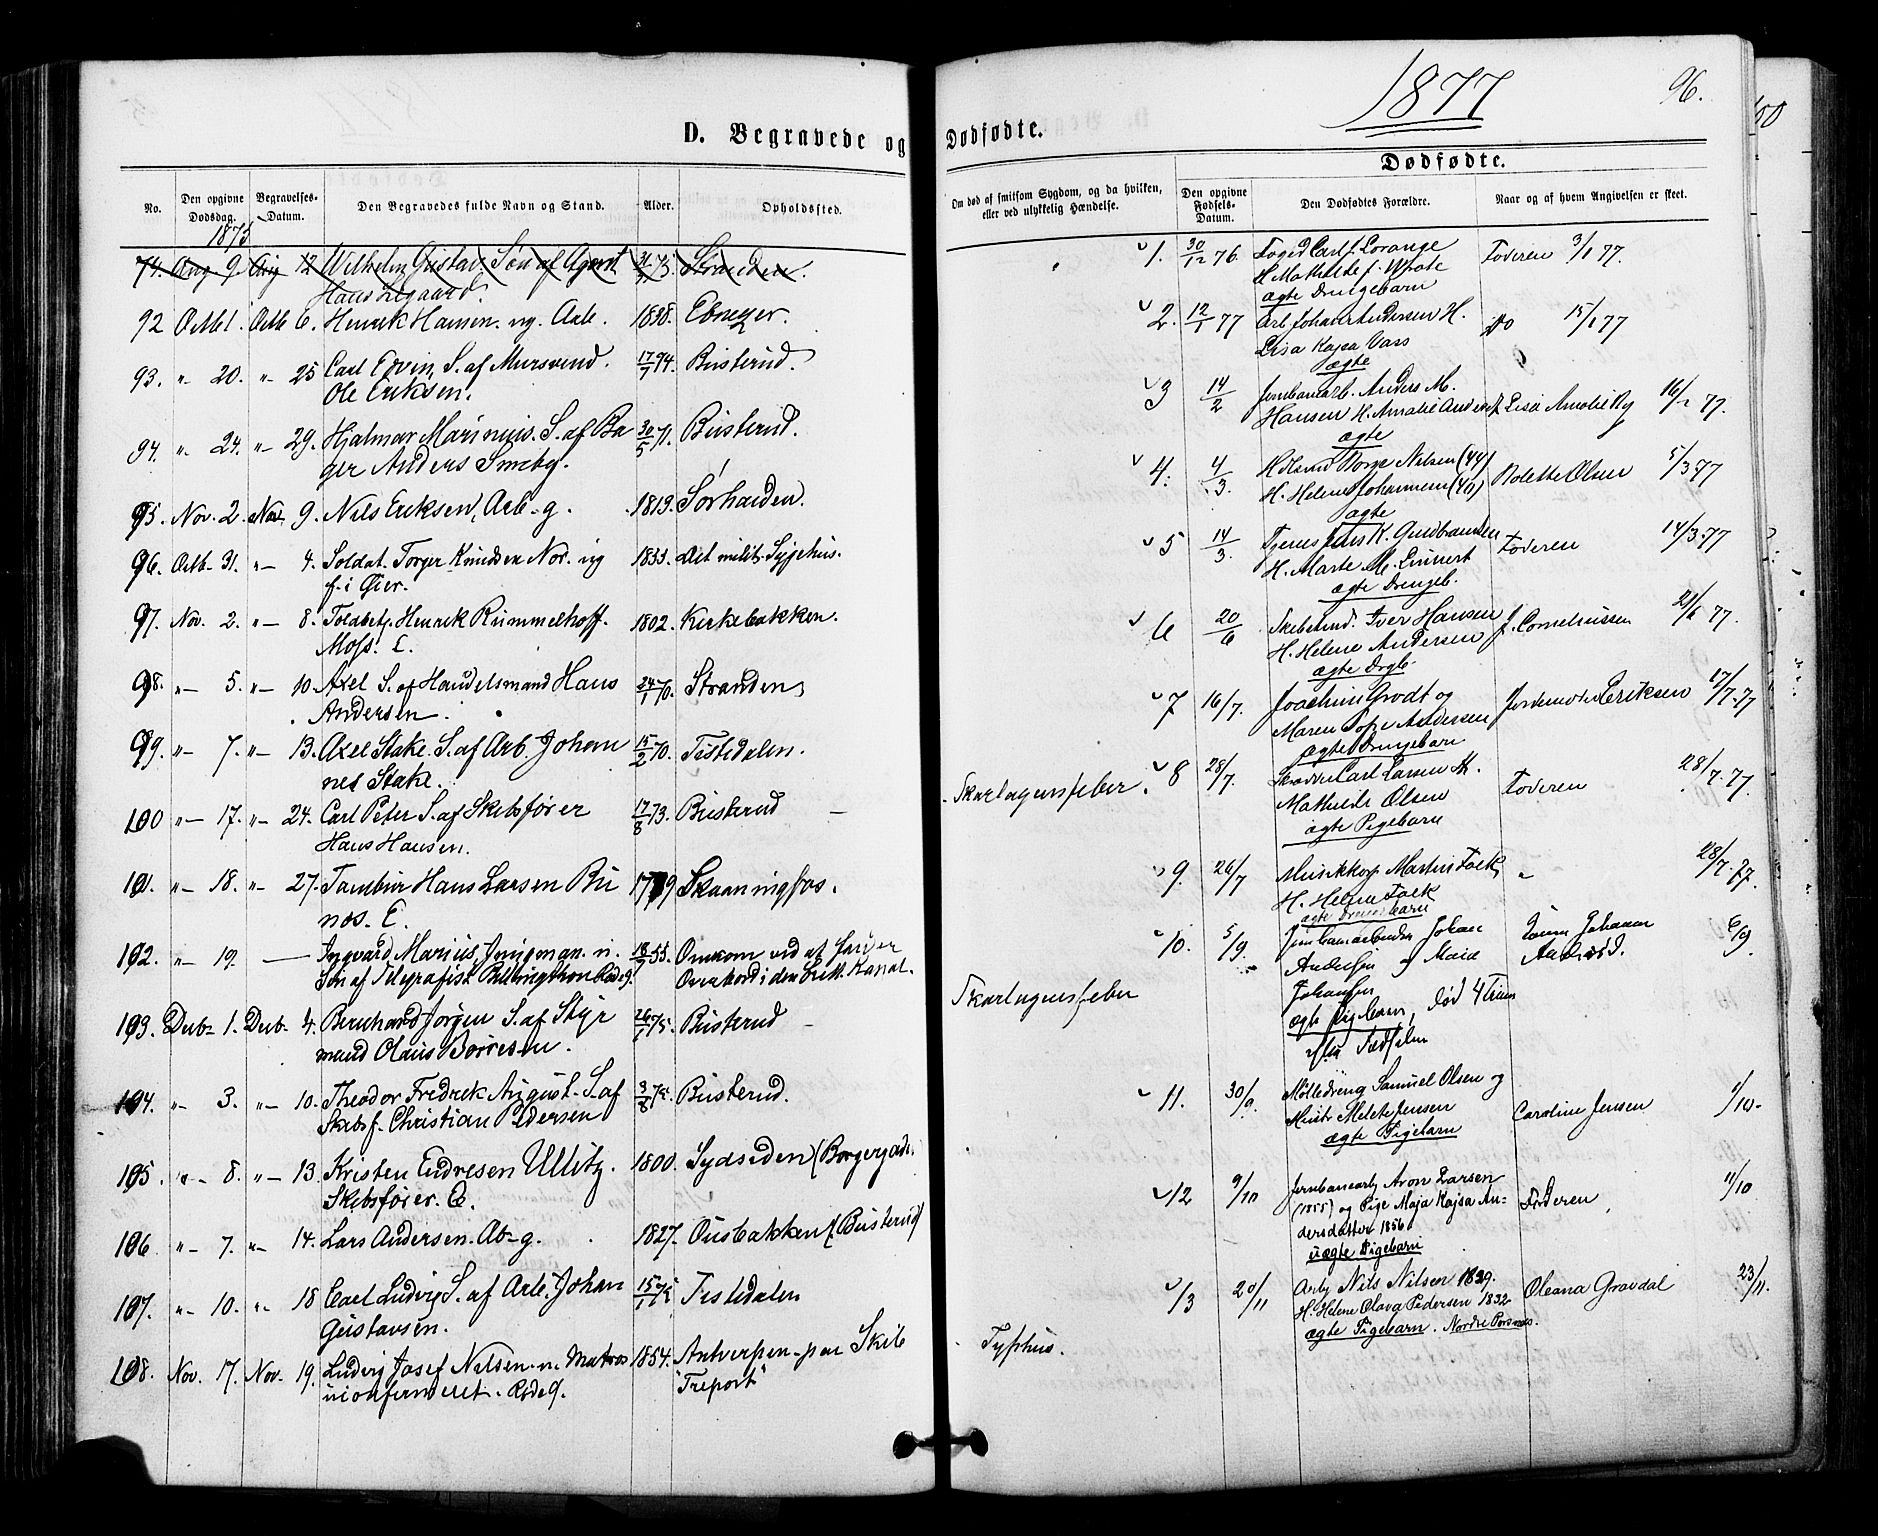 1877
96.
D. Begravede og Dødfødte.
Dødfødte.
No.
Den opgivne Dødsdag.
Begravelses-Datum.
Den Begravedes fulde Navn og Stand.
Alder.
Opholdssted.
Om død af smitsom Sygdom, og da hvilken, eller ved ulykkelig Hændelse.
Den opgivne Fødsels-Datum.
Den Dødfødtes Forældre.
Naar og af hvem Angivelsen er skeet.
1875
74. Aug 9. Aug 12 Wilhelm Gustav. Søn af Agent 75. Stranden.
Hans
92 Octb 1. Octb 6. Henrik Hansen. ug. Arb. 1838. Ebnezer.
93. " 20. " 25 Carl Edvin, S. af Mursvend 17/7 94. Busterud.
Ole Eriksen.
94. " 24. " 29. Hjalmar Marinius. S. af Ba 30/5 71. Busterud.
ger Anders Smebg.
95. Nov. 2. Nov. 9. Nils Eriksen, Arb. g. 1819. Sørhalden.
96. Octb. 31. " 4. Soldat. Torger Knudsen Nor. ug 1853. Det milit. Sygehus.
f. i Øier.
97. Nov. 2. " 8. Toldbetj. Henrik Rummelhoff. 1802. Kirkebakken.
Moss. E.
98. " 5. " 10. Axel S. af Handelsmand Hans 24/1 70. Stranden
Andersen.
99. " 7. " 13. Axel Stake. S. af Arb. Johan 15/2 70. Tistedalen.
nes Stake.
100 " 17. " 24. Carl Peter S. af Skibsfører 17/8 73. Busterud
Hans Hansen.
Skarlagensfeber.
101. " 18. " 27. Tambur Hans Larsen Bu 17 9 Skaaningfos.
nos. E.
102. " 19. — Ingvard Marius Jungman. u. 18/7 55. Omkom ved at falde
Søn af Telegrafist Overbord i den Kanal.
103. Decb. 1. Decb. 4. Bernhard Jørgen S. af Styr 26/7 75. Busterud
mand Olaus Børresen.
Skarlagensfeber
104. " 3. " 10. Theodor Fredrek August. S. af 3/8 Busterud.
Skibsf. Christian Pedersen
105. " 8. " 13. Kristen Endresen Ullitz. 1800. Sydsiden (Borgergade.
Skibsfører. E.
106 " 7. " 14. Lars Andersen. Ab. g. 1827. Ousbakken (Busterud)
107. " 10. " 18 Carl Ludvig S. af Arb. Johan 15/1 75 Tistedalen
Gustavsen.
108. Nov. 17. Nov. 19. Ludvig Josef Nilsen. u. Matros 1854. Antverpen paa Skib
uconfirmeret. "Treport"
Typhus.
1. 30/12 76. Foged Carl f. Lorange Faderen 3/1 77.
H. Mathilde f. Wrole
ægte Drengebarn
2. 12/1 77 Arb Johan Andersen H. do 15/1 77
Lisa Kajsa Vass
ægte
3 14/2 Jernbanearb. Anders M.
Hansen H. Amalie Anders J. Lisa Amalie Ry 16/2 77.
ægte
4. 4/3. Torge Nilsen (44) Bolette Olsen 5/3 77
H. Helene Johannesen (40)
ægte
5 14/3. Tjenes Jens K. Gudbrandsen Faderen 14/3 77
H. Marte M. Linnert
ægte Drengeb.
6 20/6 Skibstmd. Iver Hansen J. Corneliussen 21/6 77.
H. Helene Andersen
ægte Drgb.
7 16/7. Joachim Grodt og Jordemoder Eriksen 17/7. 77
Maren Sofie Andersen
ægte Drengebarn
8 28/7. Skrædder Carl Larsen H. Faderen 28/7. 77
Mathilde Olsen
ægte Pigebarn
9. 26/7 Musikkorp Martin Falk " 28/7. 77.
H. Helene Falk
ægte Drengebarn
10. 5/9. Jernbanearbeider Johan Johanna 6/9
Andersen og Maria
Johansen
ægte Pigebarn, død 4 Timer
efter Fødselen
11. 30/9. Mølledreng Samuel Olsen og Caroline Jensen 1/10.
Hustr Melete Jensen
ægte Pigebarn
12 9/10 Jernbanearb Aron Larsen Faderen 11/10
(1855) og Pige Maja Kajsa An-
dersdatter 1856
uægte Pigebarn
13 20/11 Arb Nils Nilsen 1829. Oleana Gravdal 23/11.
H. Helene Olava Pedersen 1832
ægte Pigebarn. Nordre